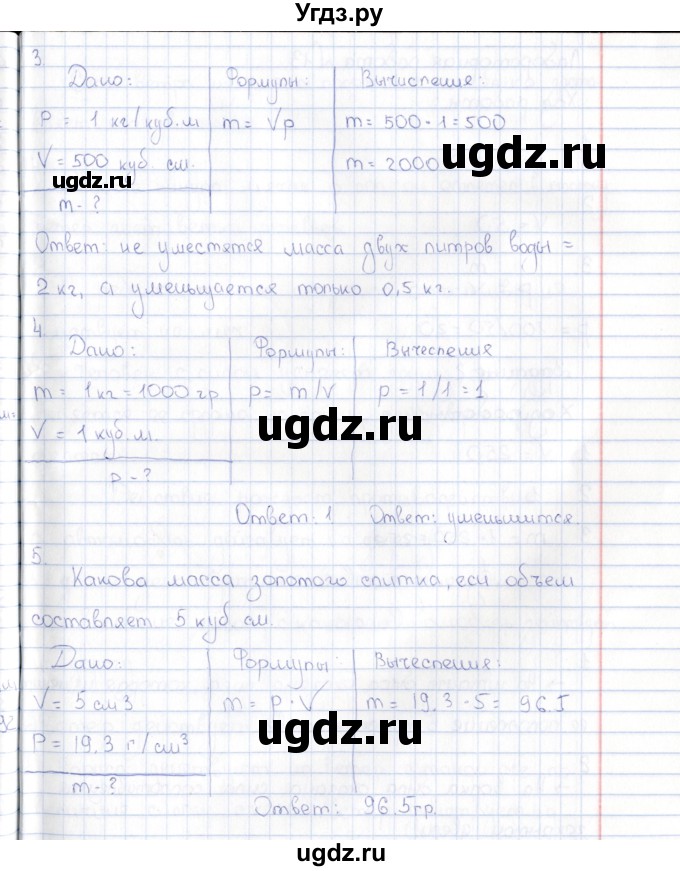 Угдз.ру
3.
Дано: Формулы: Вычисления:
P = 1 кг/куб.м m = Vp m = 500 · 1 = 500
V = 500 куб. см. m = 2000
ugdz.ru
ugdz.ru
m - ?
Ответ: не уместятся масса двух литров воды =
2 кг, а уменьшается только 0,5 кг.
4.
Дано: Формулы: Вычесления
m = 1 кг = 1000 гр p = m/V p = 1/1 = 1
V = 1 куб. м.
ugdz.ru
p - ?
Ответ: 1 Ответ: уменьшится.
ugdz.ru
5.
Какова масса золотого слитка, еси объем
составляет 5 куб. см.
Дано: Формулы: Вычесления:
V = 5 см3 m = P · V m = 19.3 · 5 = 96.5
P = 19,3 г/см³
ugdz.ru
m - ?
Ответ: 96.5 гр.
ugdz.ru